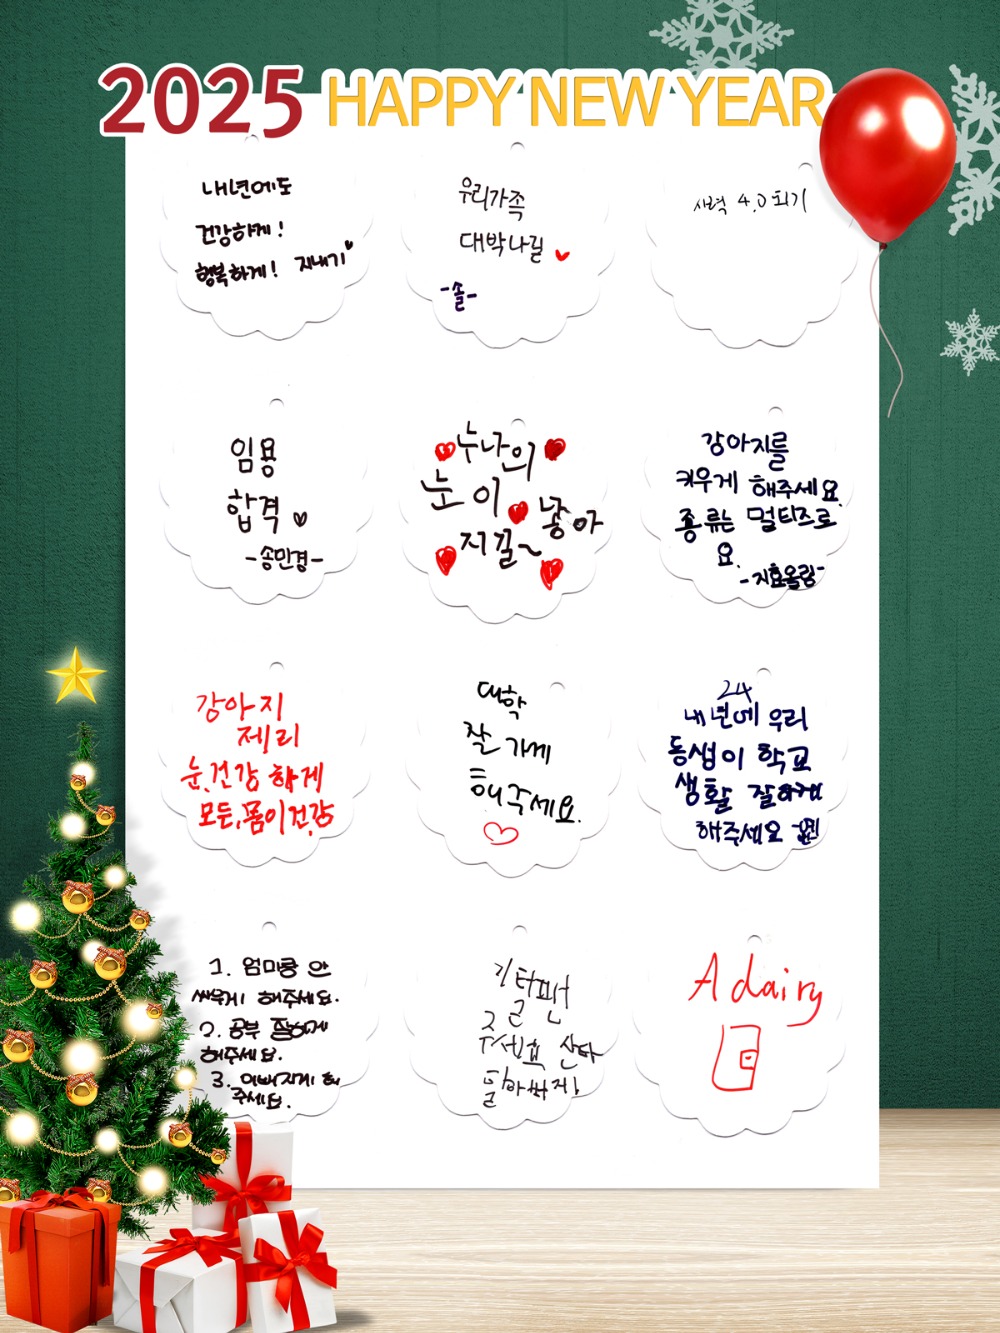 2025 HAPPY NEW YEAR
내년에도
건강하게!
행복하게! 지내기
우리가족
대박나길
-솔-
시력 4.0 되기
임용
합격
-송민경-
누나의
눈이 좋아
지길~
강아지를
키우게 해주세요.
종류는 멀티즈로
요.
강아지
제리
눈,건강 하게
모든,몸이건강
대학
잘 가게
해주세요.
24
내년에 우리
동생이 학교
생활 잘하게
해주세요
1. 엄마랑 안
싸우게 해주세요.
2. 공부 잘하게
해주세요.
3. 이뻐지게 해
주세요.
산타
A dairy